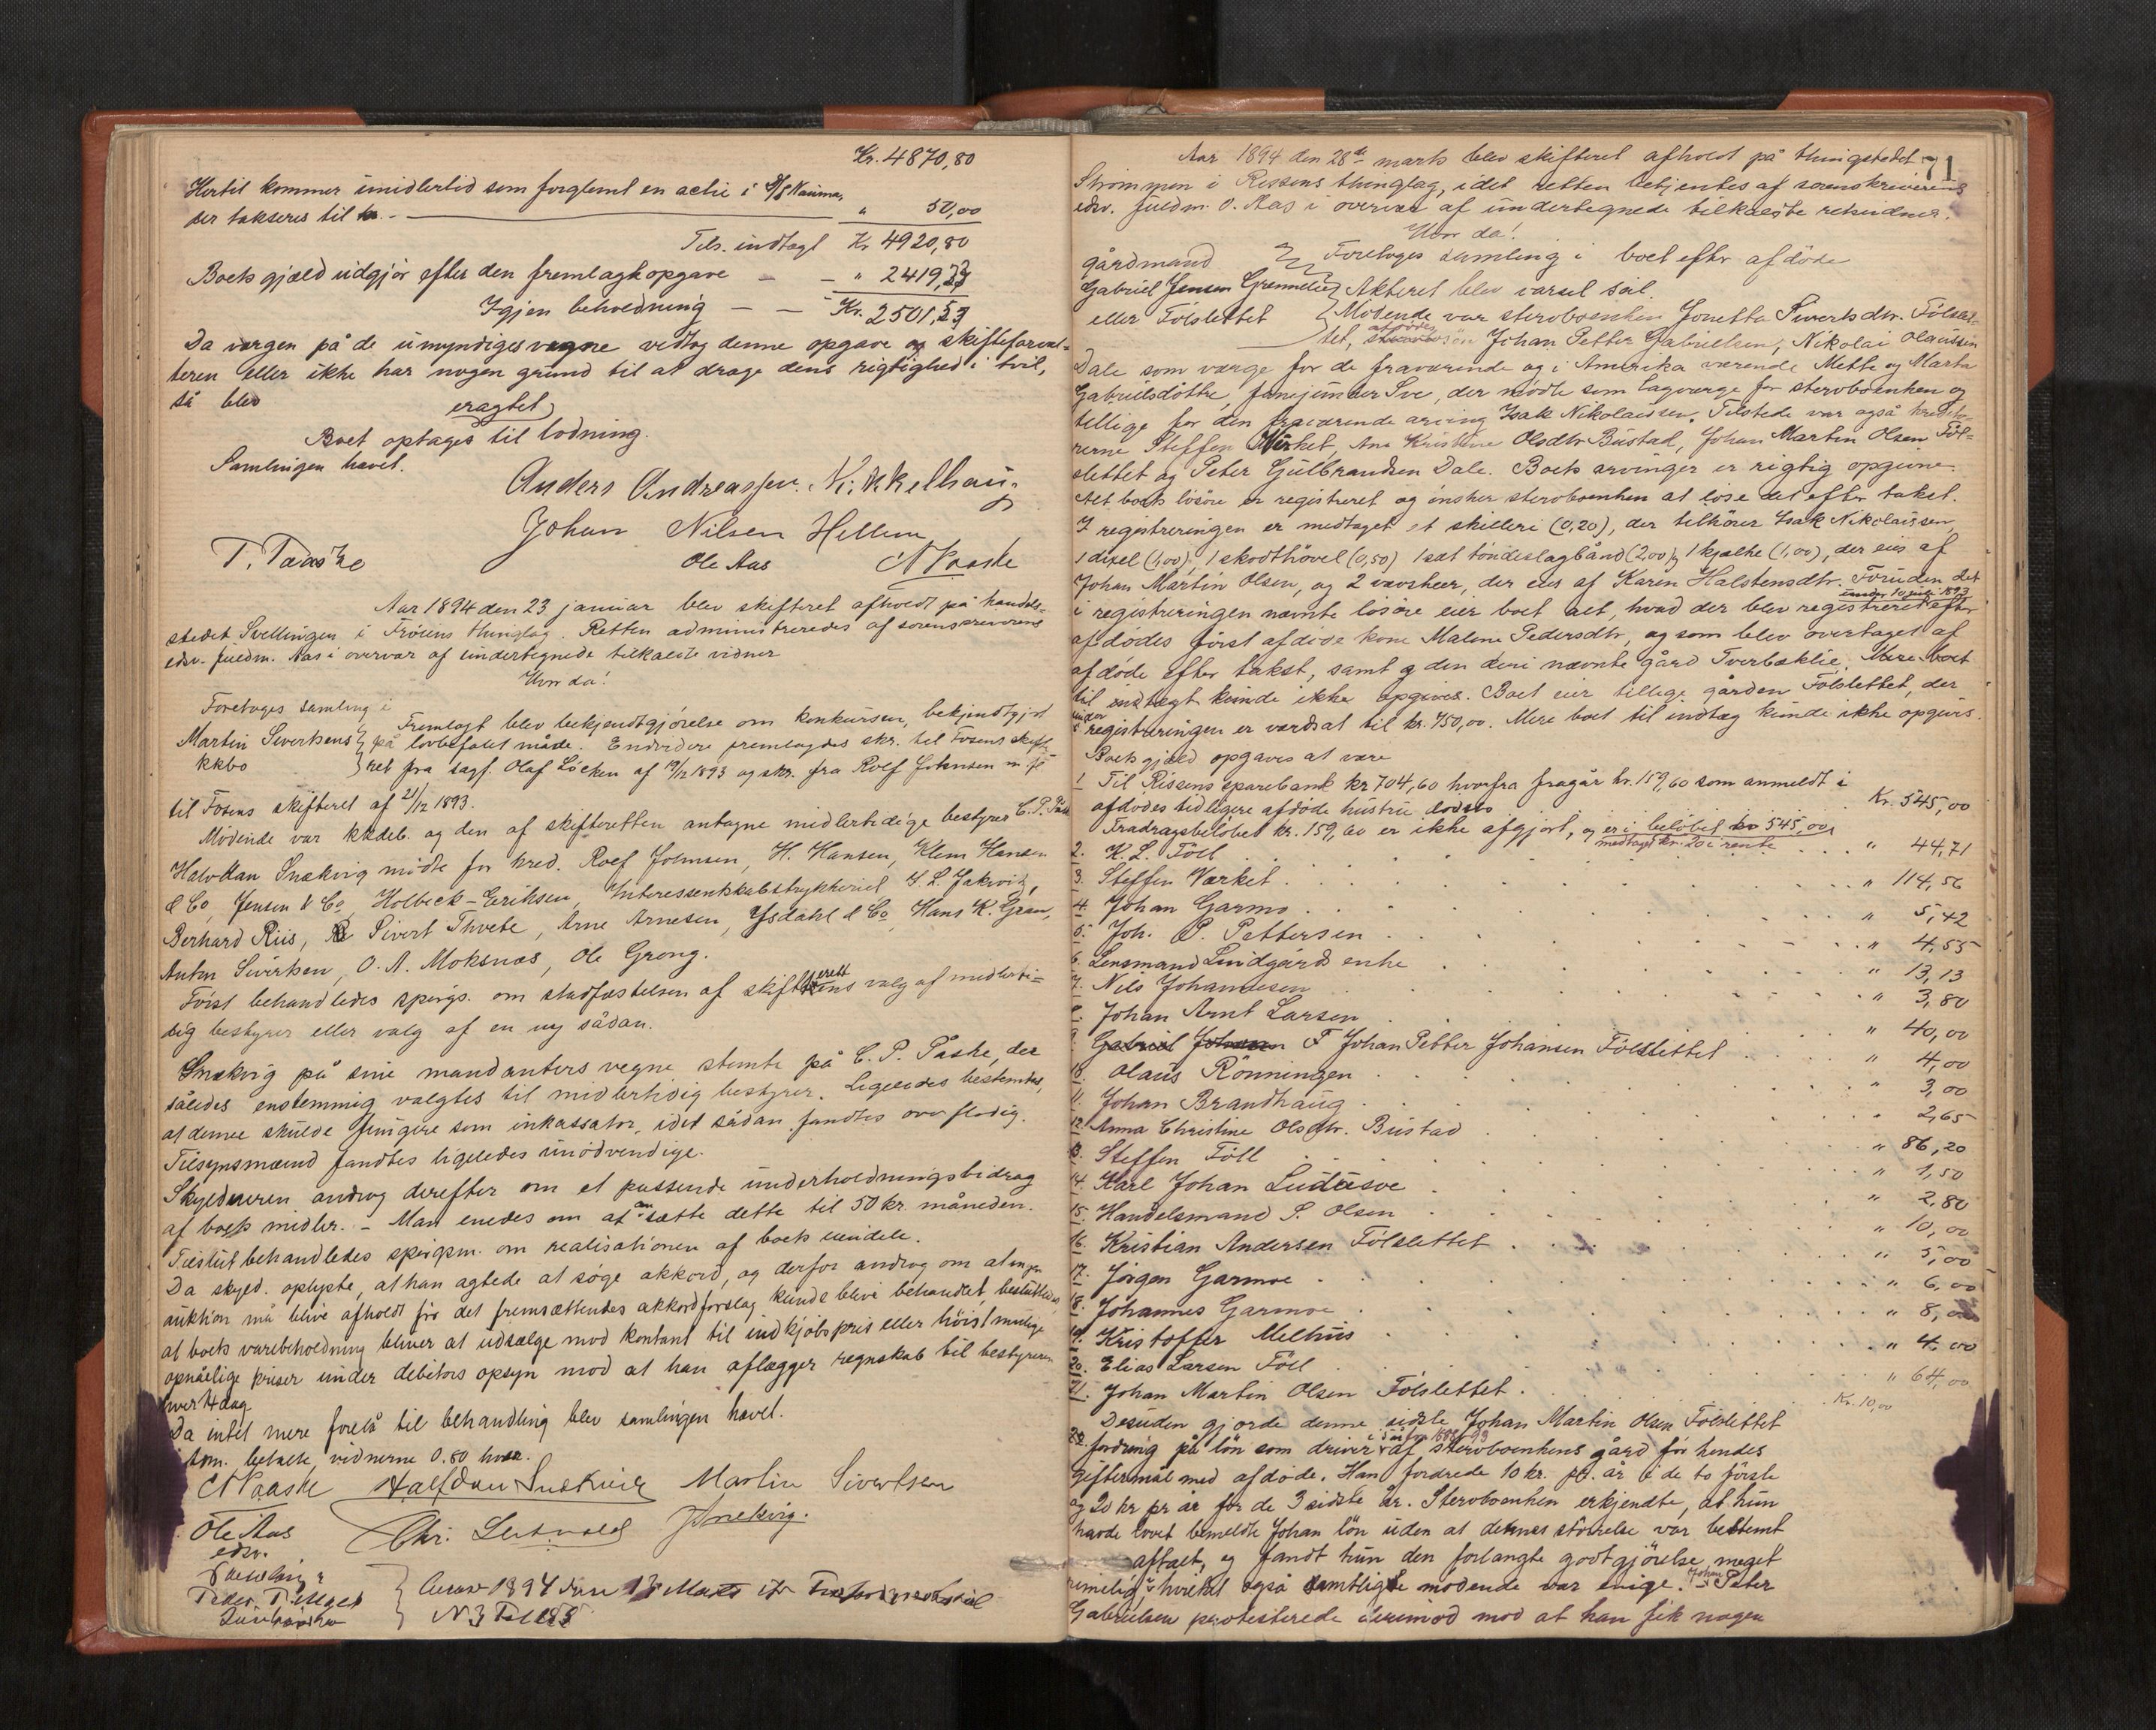 Kr. 4870,80
Hertil kommer imidlertid som forglemt en actie i D/S Nauma,
der takseres til kr. - " 50,00
Tils. indtægt Kr 4920,80
Boets gjæld udgjør efter den fremlagte opgave - - " 2419,27
Igjen beholdning - - Kr. 2501,53
Da værgen på de umyndiges vegne vedtog denne opgave og skifteforval-
teren eller ikke har nogen grund til at drage dens rigtighed i tvil,
så blev
eragtet
Boet optages til lodning.
Samlingen hævet.
Anders Andreassen.
Johan Nilsen Hellem
T. Taaske Ole Aas
Aar 1894 den 23 januar blev skifteret afholdt på handels-
stedet Svellingen i Frøiens thinglag. Retten administreredes af sorenskriverens
edsv. fuldm. Aas i overvær af undertegnede tilkaldte vidner
Hvor da!
Foretoges samling i
Martin Sivertsens
kkbo
Fremlagt blev bekjendtgjørelse om konkursen, bekjendtgjort
på lovbefalet måde. Endvidere fremlagdes skr. til Fosens skifte-
ret fra sagf. Olaf Löcken af 19/12 1893 og skr. fra Rolf Johnsen m fl
til Fosens skifteret af 21/12 1893.
Mødende var kkdeb. og den af skifteretten antagne midlertidige bestyrer C. P. Påske
Halvdan Snekvig mödte for kred. Rolf Johnsen, H. Hansen, Klem Hansen
& Co, Jensen & Co, Holbeck-Eriksen, Interessentskabstrykkeriet, S. L. Jakwitz,
Berhard Riis, Sivert Thvete, Arne Arnesen, Ysdahl & Co, Hans K. Gran,
Anton Sivertsen, O. A. Moksnæs, Ole Grong.
Först behandledes spørgs. om stadfæstelsen af skifterettens valg af midlerti-
dig bestyrer eller valg af en ny sådan.
Snekvig på sine mandanters vegne stemte på C. P. Påske, der
således enstemmig valgtes til midlertidig bestyrer. Ligeledes bestemtes,
at denne skulde fungere som inkassator, idet sådan fandtes overflødig.
Tilsynsmænd fandtes ligeledes unödvendige.
Skyldneren androg derefter om et passende underholdningsbidrag
af boets midler. - Man enedes om at ansætte dette til 50 kr. måneden.
Tilslut behandledes spörgsm. om realisationen af boets eiendele.
Da skyld. oplyste, at han agtede at søge akkord, og derfor androg om at ingen
auktion må blive afholdt før det fremsættendes akkordforslag kunde blive behandlet, besluttedes
at boets varebeholdning bliver at udsælge mod kontant til indkjøbspris eller höist mulige
opnåelige priser under debitors opsyn mod at han aflægger regnskab til bestyreren
hver 14 dag.
Da intet mere forelå til behandling blev samlingen hævet.
Kom. betalte vidnerne 0.80 hver.
Halfdan Snekvig Martin Sivertsen
Ole Aas
edsv.
71
Aar 1894 den 28de marts blev skifteret afholdt på thingstedet
Strømmen i Rissens thinglag, idet retten betjentes af sorenskriverens
edsv. fuldm. O. Aas i overvær af undertegnede tilkaldte retsvidner.
Hvor da!
gårdmand
Gabriel Jensen Grønnelid
eller Fölslettet
Foretoges samling i boet efter afdøde
Akteret blev varsel sål.
Mødende var stervboenken Jonetta Sivertsdtr. Fölslet-
tet, afdødes sön Johan Petter Gabrielsen, Nikolai Olaussen
Dale som værge for de fraværende og i Amerika værende Mette og Marta
Gabrielsdötre, forøvrigt Sve, der mödte som lagværge for stervboenken og
tillige for den fraværende arving Isak Nikolaissen. Tilstede var også kredito-
rerne Steffen Værket, Ane Kristine Olsdtr Bustad, Johan Martin Olsen Föl-
slettet og Peter Gulbrandsen Dale. Boets arvinger er rigtig opgivne.
Alt boets lösöre er registreret og önsker stervboenken at löse det efter takst.
I registreringen er medtaget et skilleri (0,20), der tilhörer Isak Nikolaissen,
1 dixel (1,00), 1 skodthövel (0,50) 1 sæt töndeslagbånd (2,00) 1 kjælke (1,00), der eies af
Johan Martin Olsen, og 2 vævskeer, der eies af Karen Halstensdtr. Foruden det
i registreringen nævnte lösöre eier boet alt, hvad der blev registreret under 10 juli 1893 efter
afdödes först afdöde kone Malene Pedersdtr, og som blev overtaget af
afdöde efter takst, samt og den deri nævnte gård Tverbæklie. Mere boet
til indtægt kunde ikke opgives. Boet eier tillige gården Fölslettet, der
under registreringen er værdsat til kr. 750,00. Mere boet til indtæg kunde ikke opgives.
Boets gjæld opgaves at være
1 Til Rissens sparebank kr 704,60 hvorfra fragår kr. 159,60 som anmeldt i
afdödes tidligere afdøde hustrues dødsbo Kr. 545,00
Fradragsbelöbet kr. 159,60 er ikke afgjort, og er i belöbet kr 545,00
medtaget kr. 20 i rente
2. K. L. Föll " 44,71
3. Steffen Værket " 114,56
4. Johan Garmo " 5,42
5. Joh. P. Pettersen " 4,55
6. Lensmand Lindgårds enke " 13,13
7. Nils Johannesen " 3,80
8. Johan Arnt Larsen " 40,00
9. Johan Petter Johansen Fölslettet " 4,00
10. Olaus Rönningen " 3,00
11. Johan Brandhaug " 2,65
12. Anna Christine Olsdtr. Bustad " 86,20
13. Steffen Föll " 1,50
14. Karl Johan Ludåsve " 2,80
15. Handelsmand S. Olsen " 10,00
16. Kristian Andersen Fölslettet " 5,00
17. Jörgen Garmoe " 6,00
18. Johannes Garmoe " 8,00
19. Kristoffer Melhus " 4,00
20. Elias Larsen Föll " 64,00
21. Johan Martin Olsen Fölslettet. Kr. 10,00
Desuden gjorde denne sidste Johan Martin Olsen Fölslettet
22. fordring på lön som driver af stervboenkens gård för hendes
giftermål med afdöde. Han fordrede 10 kr. pr. år i de to förste
og 20 kr pr år for de 3 sidste år. Stervboenken erkjendte, at hun
havde lovet bemeldte Johan lön uden at dennes størrelse var bestemt
aftalt, og fandt hun den forlangte godtgjörelse meget
rimelig, hvilket også samtlige mödende var enige. Johan Peter
Gabrielsen protesterede derimod mod at han fik nogen